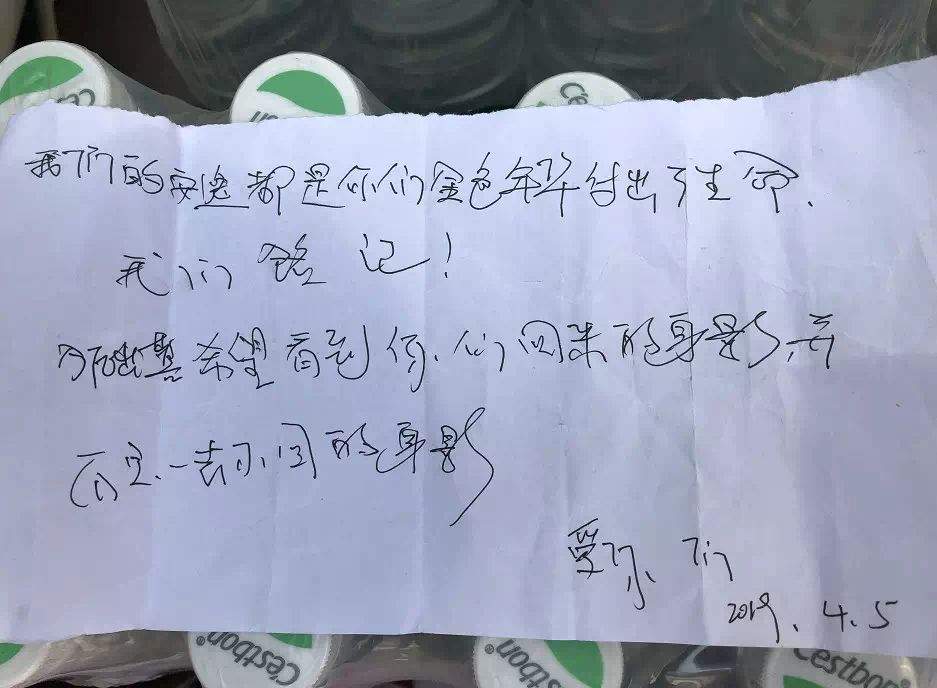 我们的安逸都是你们金色年华付出了生命.
我们铭记!
希望看到你们回来的身影,并
不是一去不回的身影
爱你们
2019.4.5
C'estbon®
C'estbon®
C'estbon